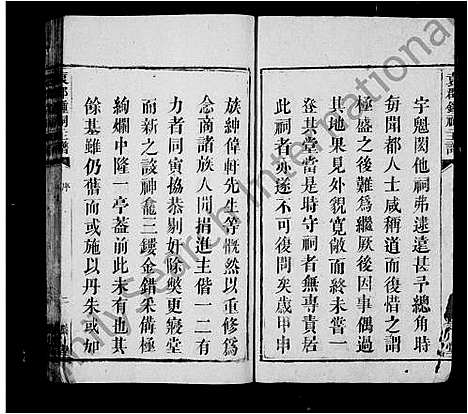 宇魁閎他祠弗逮遠甚予總角時
每聞都人士咸稱道而復惜之謂
極盛之後難爲繼厥後因事偶過
其地果見外貌寛敞而終未嘗一
登其堂當是時守祠者無專責居
此祠者亦遂不可復問矣歲甲申
族紳偉軒先生等慨然以重修爲
念商諸族人閒捐進主偕一二有
力者同寅協恭剔奸除獘更寢堂
而新之設神龕三鏤金錯采備極
絢爛中隆一亭蓋前此未有也其
餘基雖仍舊而或施以丹朱或如
袁郡鍾祠主譜
序
FamilySearch International